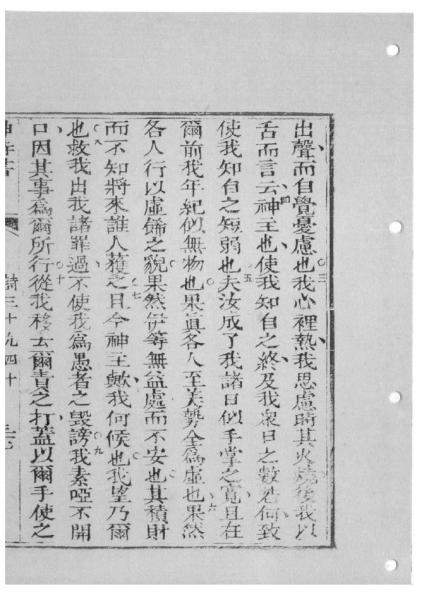 出聲而自覺憂慮也我心裡熱我思慮時其火燒後我以
舌而言云神主也使我知自之終及我衆日之數若何致
使我知自之短弱也夫汝成了我諸日似手掌之寬且在
爾前我年紀似無物也果眞各人至美勢全爲虛也果然
各人行以虛餙之貌果然伊等無益處而不安也其積財
而不知將來誰人穫之且今神主歟我何候也我望乃爾
也救我出我諸罪過不使我爲愚者之毀謗我素啞不開
口因其事爲爾所行從我移去爾責之打蓋以爾手使之
詩三十九四十